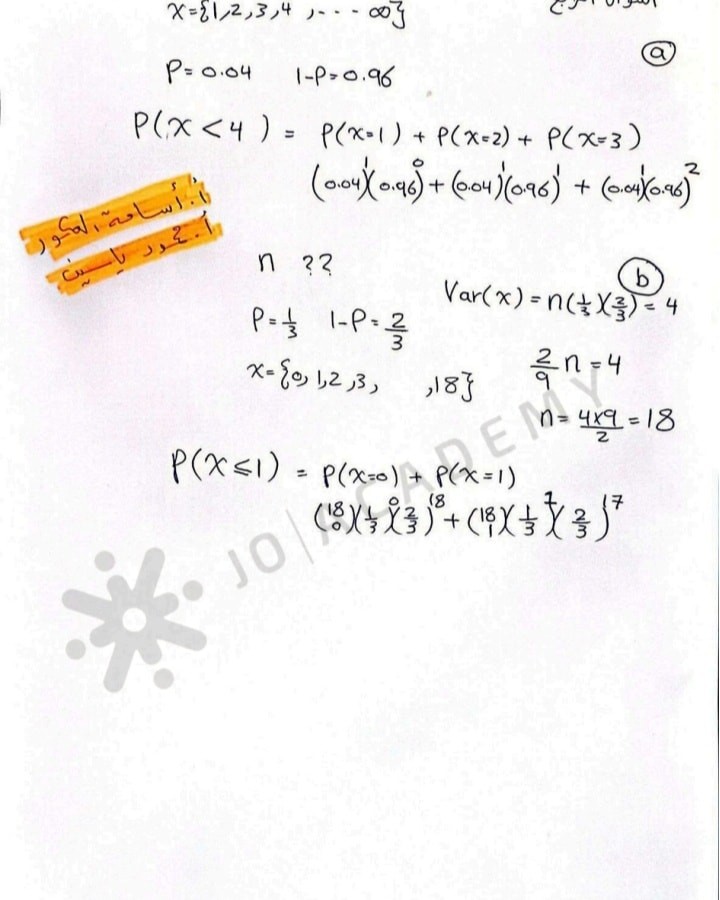 x={1,2,3,4,... ∞}
a
P=0.04 1-P=0.96
P(x<4) = P(x=1) + P(x=2) + P(x=3)
(0.04)^1(0.96)^0 + (0.04)^1(0.96)^1 + (0.04)^1(0.96)^2
أ. أسامة
أ. محمود ياسين
b
n ??
Var(x) = n(1/3)(2/3) = 4
P=1/3 1-P=2/3
2/9 n = 4
x={0,1,2,3, ,18}
n= 4x9/2 = 18
P(x≤1) = P(x=0) + P(x=1)
(18 0)(1/3)^0(2/3)^18 + (18 1)(1/3)^1(2/3)^17
JO|ACADEMY